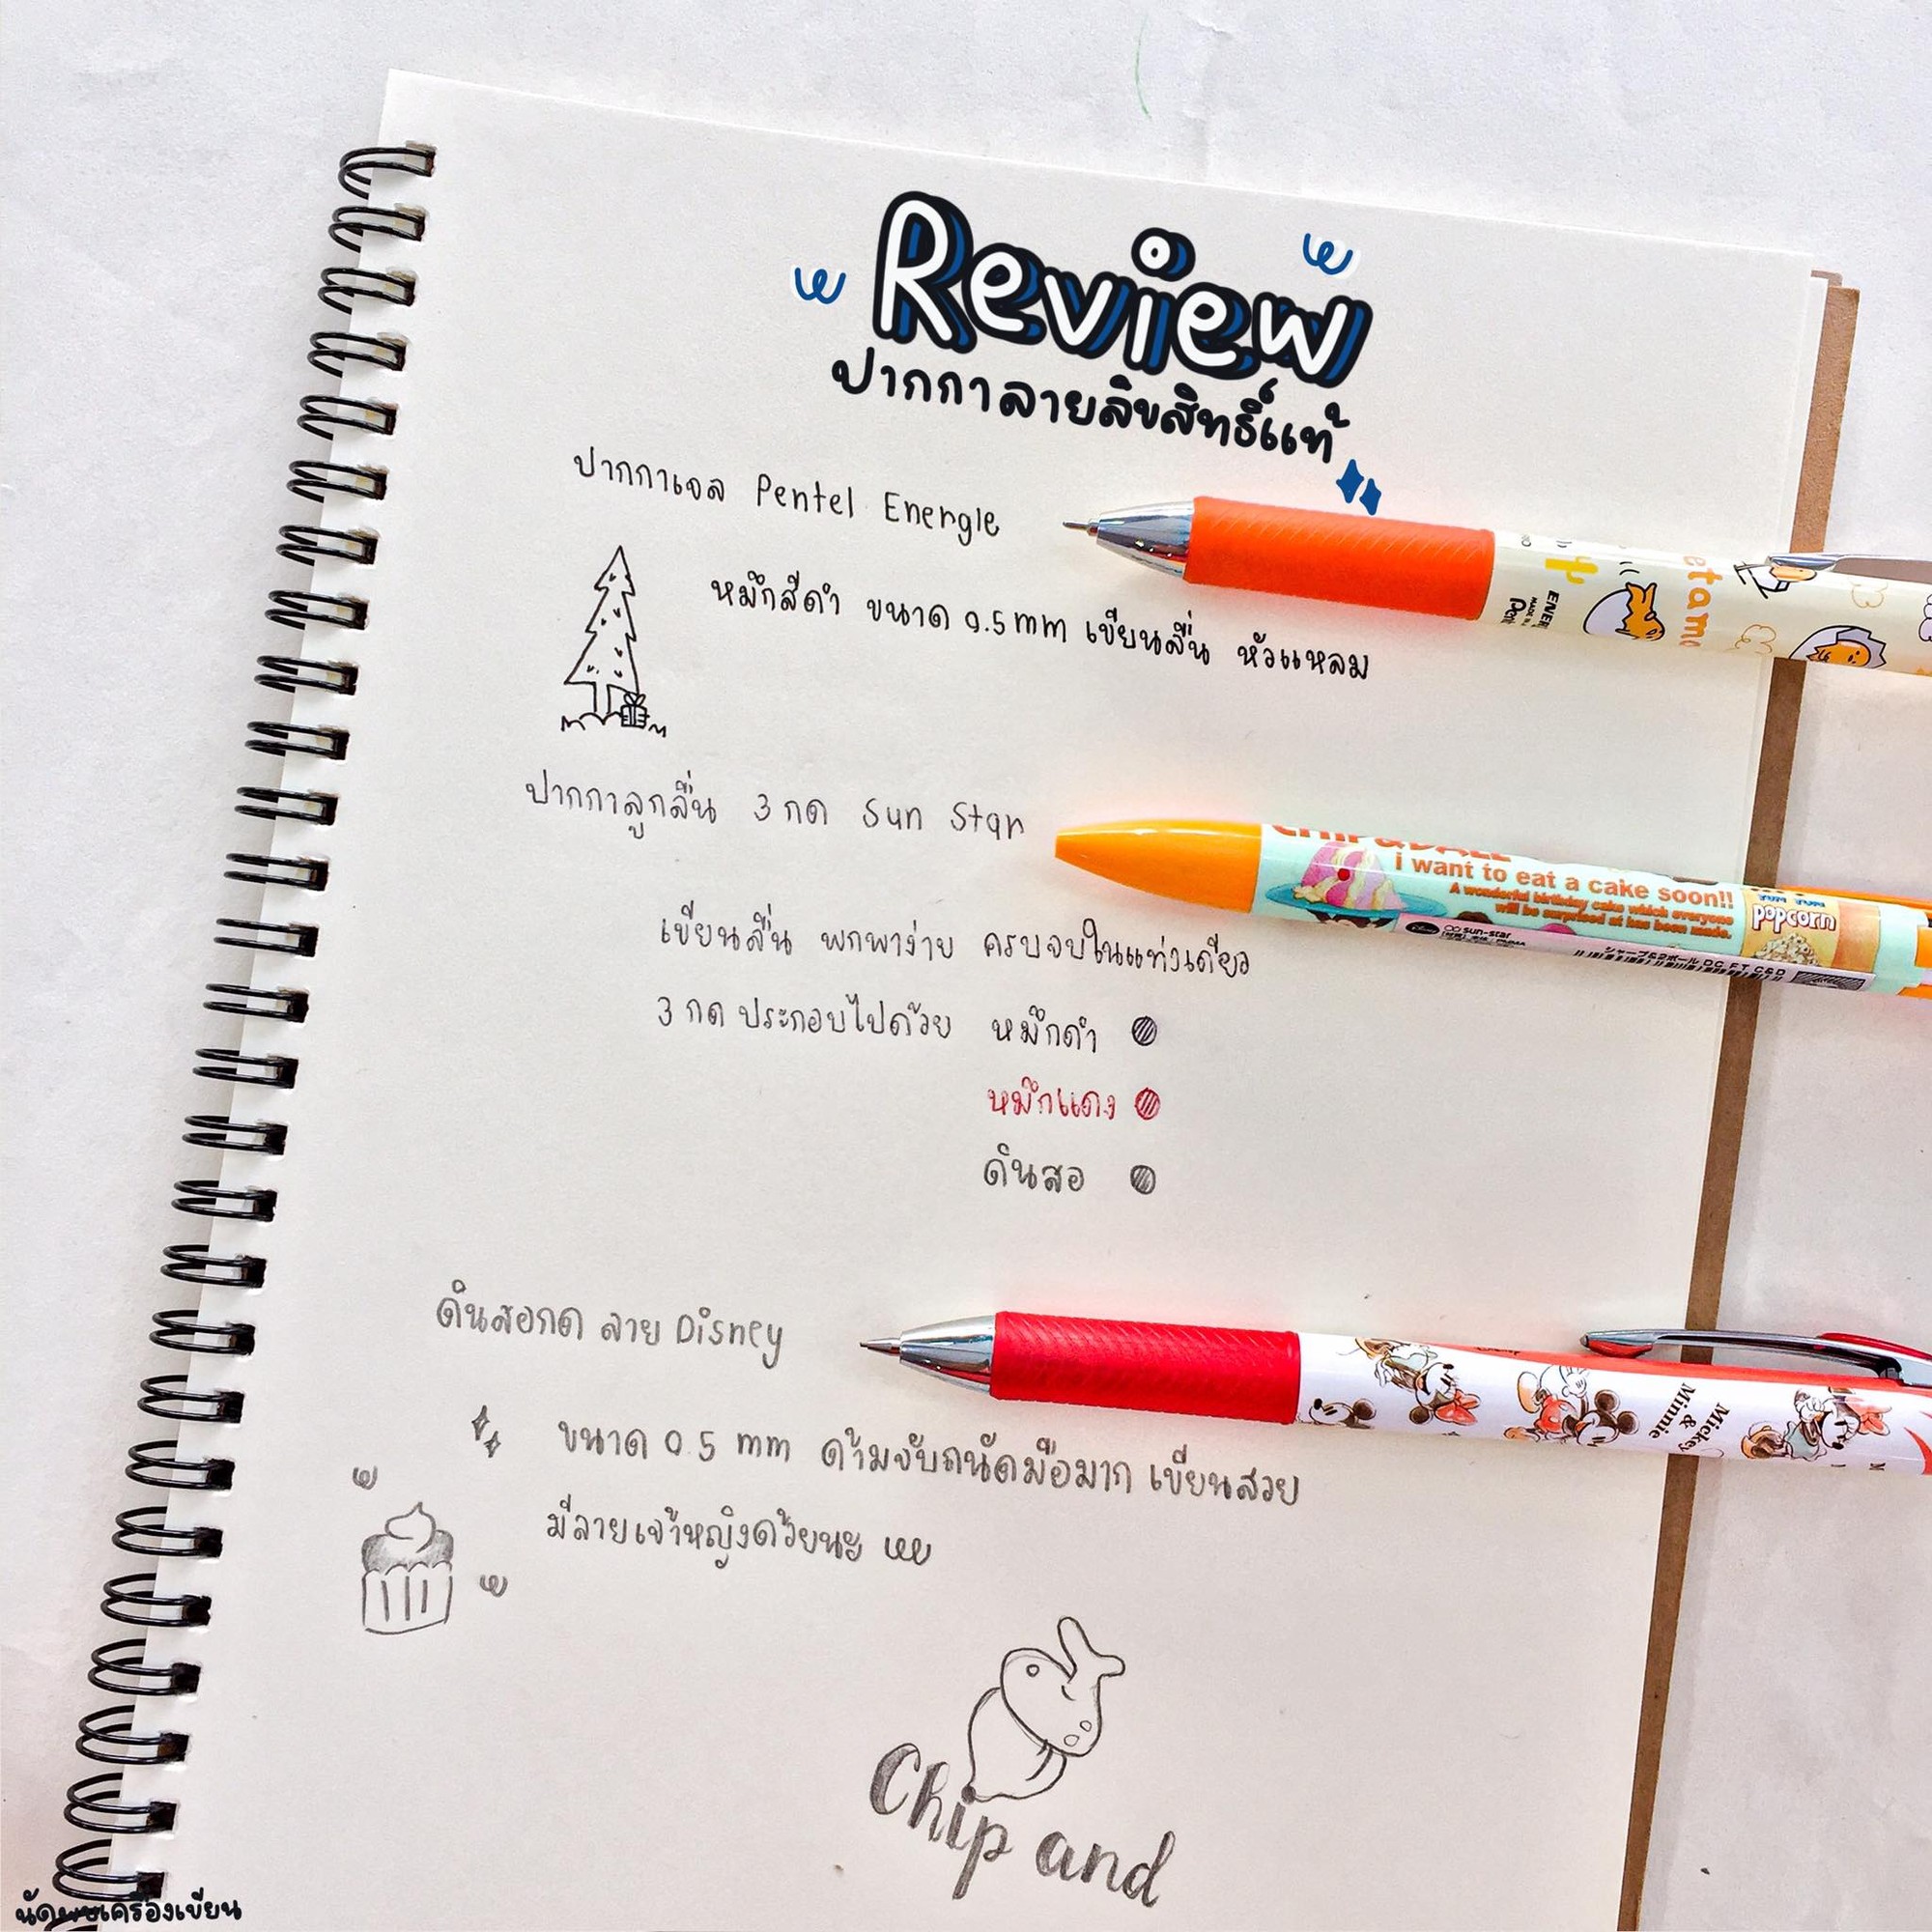 Review
ปากกาลายลิขสิทธิ์แท้
ปากกาเจล Pentel Energie
หมึกสีดำ ขนาด 0.5 mm เขียนลื่น หัวแหลม
ปากกาลูกลื่น 3 กด Sun Star
i want to eat a cake soon!!
A wonderful birthday cake which everyone
will be surprised at has been made.
popcorn
sun-star
เขียนลื่น พกพาง่าย ครบจบในแท่งเดียว
3 กด ประกอบไปด้วย หมึกดำ
หมึกแดง
ดินสอ
ดินสอกด ลาย Disney
Mickey
&
Minnie
ขนาด 0.5 mm ด้ามจับถนัดมือมาก เขียนสวย
มีลายเจ้าหญิงด้วยนะ
Chip and